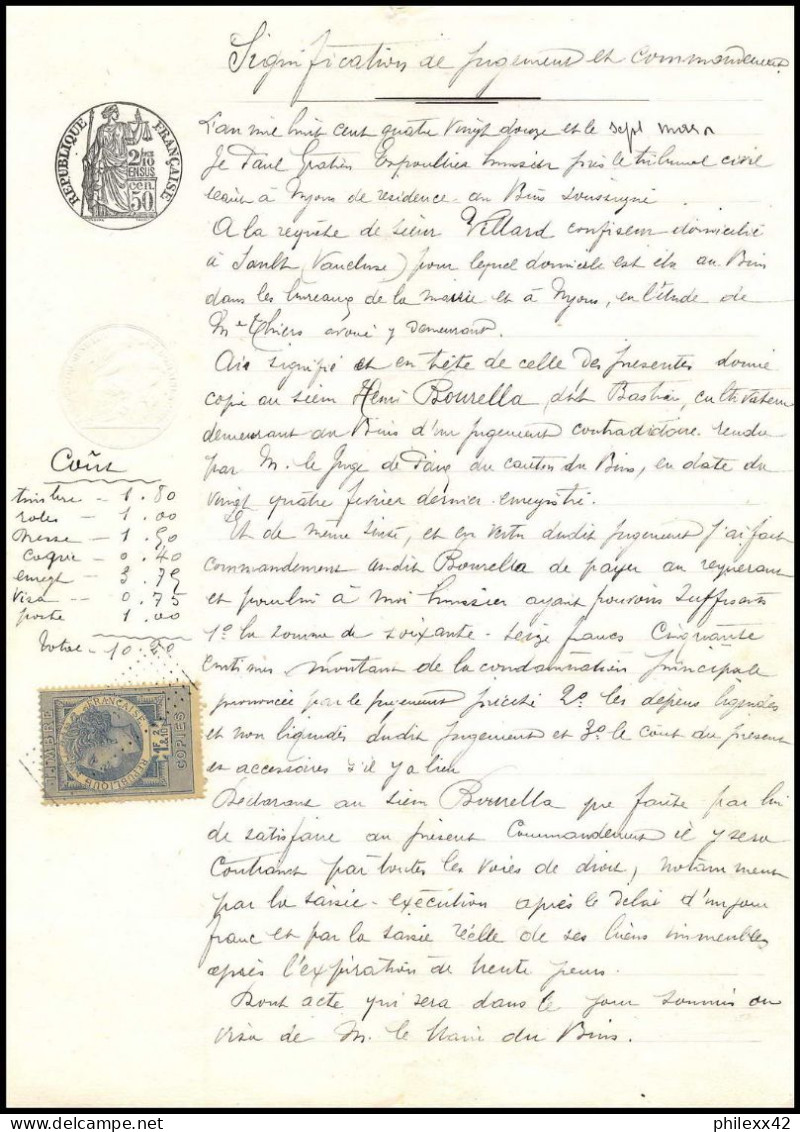 Signification de jugement et commandement
L'an mil huit cent quatre vingt douze et le sept mars
Je Paul Gratien huissier près le tribunal civil
séant à Nyons de résidence au Buis soussigné
A la requête de sieur Villard confiseur domicilié
à Sault (Vaucluse) pour lequel domicile est élu au Buis
dans les bureaux de la mairie et à Nyons, en l'étude de
Me Thiers avoué y demeurant.
Ai signifié et en tête de celle des présentes donné
copie au sieur Henri Bourella dit Bastian, cultivateur
demeurant au Buis d'un jugement contradictoire rendu
par M. le Juge de Paix du canton du Buis, en date du
vingt quatre février dernier enregistré.
Et de même suite, et en vertu dudit jugement j'ai fait
commandement audit Bourella de payer au requérant
et pour lui à moi huissier ayant pouvoirs suffisants
1º la somme de soixante-seize francs cinquante
centimes montant de la condamnation principale
prononcée par le jugement précité 2º les dépens liquidés
et non liquidés dudit jugement et 3º le coût du présent
et accessoires s'il y a lieu
Déclarant au sieur Bourella que faute par lui
de satisfaire au présent Commandement il y sera
contraint par toutes les voies de droit, notamment
par la saisie-exécution après le délai d'un jour
franc et par la saisie réelle de ses biens immeubles
après l'expiration de trente jours.
Dont acte qui sera dans le jour soumis au
visa de M. le Maire du Buis.
REPUBLIQUE FRANÇAISE
2/10 EN SUS
50 cen.
Coût
timbre - 1.80
roles - 1.00
- 1.50
copie - 0.40
enregt - 3.75
visa - 0.75
poste - 1.00
Total - 10.20
TIMBRE
COPIES
REPUBLIQUE FRANÇAISE
delcampe.net
philexx42